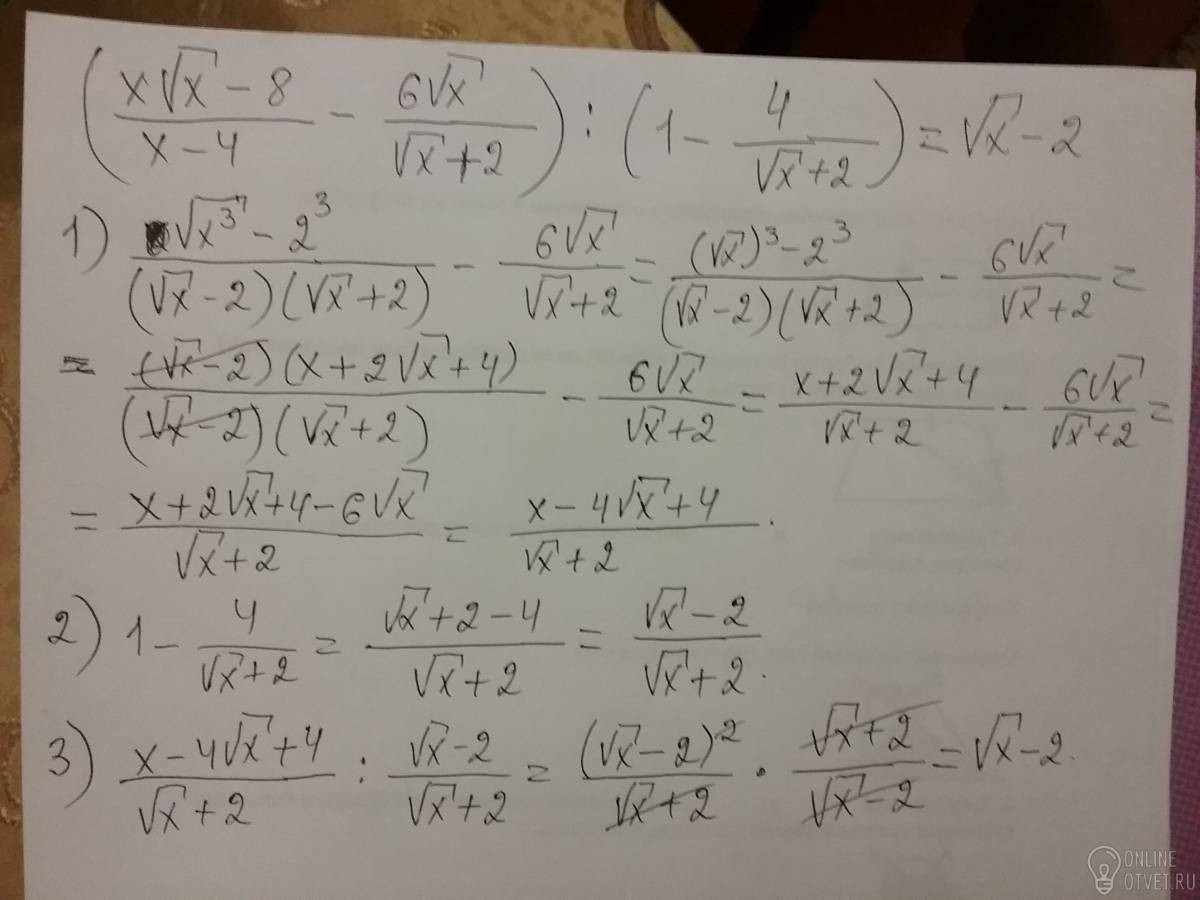 (x√x - 8 / x - 4 - 6√x / √x + 2) : (1 - 4 / √x + 2) = √x - 2
1) √x³ - 2³ / (√x - 2)(√x + 2) - 6√x / √x + 2 = (√x)³ - 2³ / (√x - 2)(√x + 2) - 6√x / √x + 2 =
= (√x - 2)(x + 2√x + 4) / (√x - 2)(√x + 2) - 6√x / √x + 2 = x + 2√x + 4 / √x + 2 - 6√x / √x + 2 =
= x + 2√x + 4 - 6√x / √x + 2 = x - 4√x + 4 / √x + 2.
2) 1 - 4 / √x + 2 = √x + 2 - 4 / √x + 2 = √x - 2 / √x + 2.
3) x - 4√x + 4 / √x + 2 : √x - 2 / √x + 2 = (√x - 2)² / √x + 2 · √x + 2 / √x - 2 = √x - 2.
ONLINE
OTVET.RU